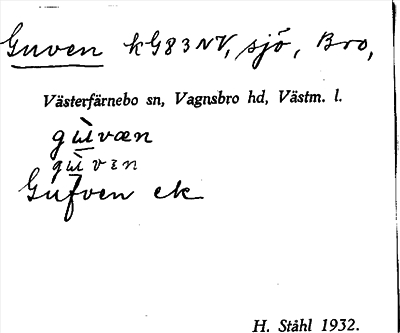 Guven kG83NV, sjö, Bro,
Västerfärnebo sn, Vagnsbro hd, Västm. l.
gùvæn
gùvɪn
Gufven ek
H. Ståhl 1932.